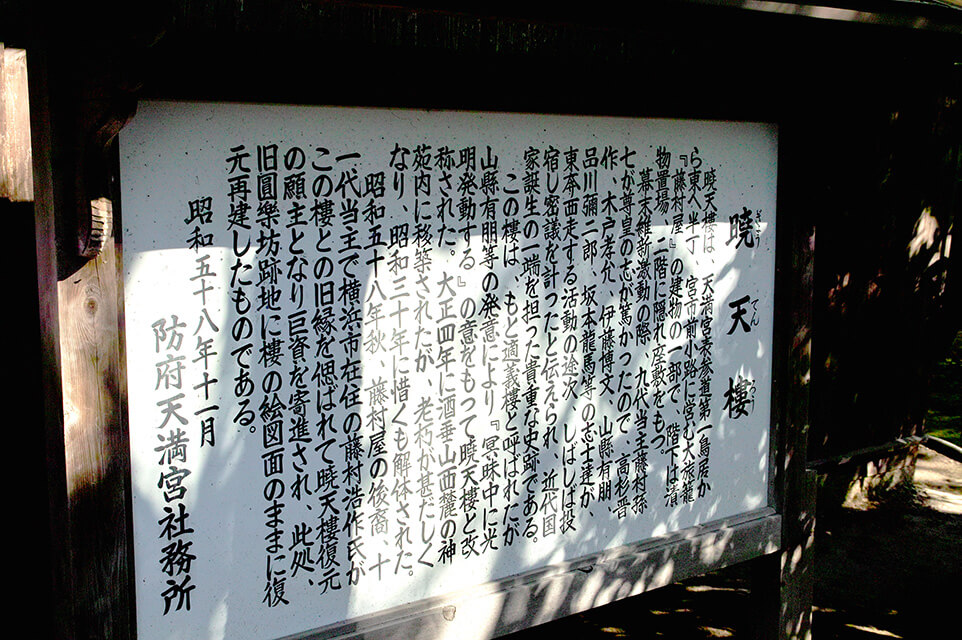 暁天樓
ぎょうてんろう
暁天樓は、天満宮表参道第一鳥居か
ら東入半丁、宮市前小路に営む大旅籠
『藤村屋』の建物の一部で、階下は漬
物置場、二階に隠れ座敷をもつ。
幕末維新激動の際、九代当主藤村孫
七が尊皇の志が篤かったので、高杉晋
作、木戸孝允、伊藤博文、山縣有朋、
品川彌二郎、坂本龍馬等の志士達が、
東奔西走する活動の途次、しばしば投
宿し密議を計ったと伝えられ、近代国
家誕生の一端を担った貴重な史跡である。
この樓は、もと適義樓と呼ばれたが
山縣有朋等の発意により、『冥昧中に光
明発動する』の意をもって暁天樓と改
称された。大正四年に酒垂山西麓の神
苑内に移築されたが、老朽が甚だしく
なり、昭和三十年に惜くも解体された。
昭和五十八年秋、藤村屋の後裔、十
一代当主で横浜市在住の藤村浩作氏が
この樓との旧縁を偲ばれて暁天樓復元
の願主となり巨資を寄進され、此処、
旧圓樂坊跡地に樓の絵図面のままに復
元再建したものである。
昭和五十八年十一月
防府天満宮社務所